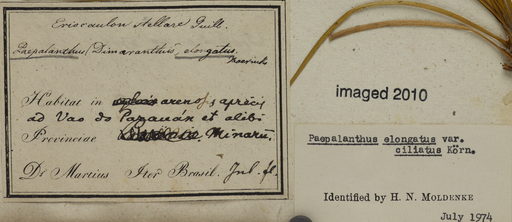 Eriocaulon stellare Guill.
Paepalanthus (Dimeranthus) elongatus
Koernicke
Habitat in arenosis apricis
ad Vao do Paranán et alibi
Provinciae Minarum,
Dr Martius Iter Brasil. Jul. fl.
imaged 2010
Paepalanthus elongatus var.
ciliatus Körn.
Identified by H. N. MOLDENKE
July 1974